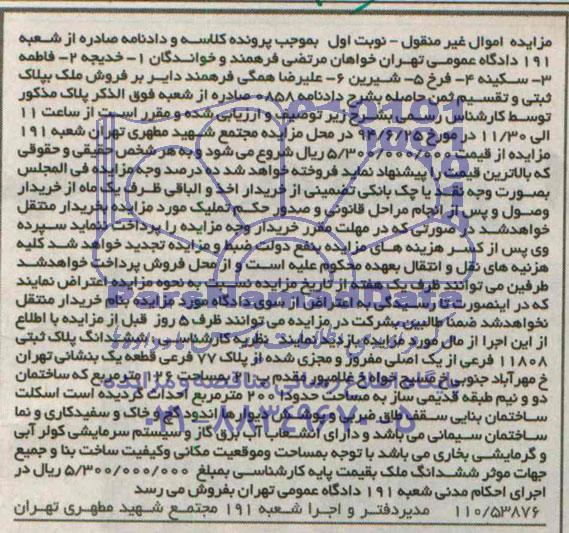 مزایده اموال غیر منقول - نوبت اول بموجب پرونده کلاسه و دادنامه صادره از شعبه
۱۹۱ دادگاه عمومی تهران خواهان مرتضی فرهمند و خواندگان ۱- خدیجه ۲- فاطمه
۳- سکینه ۴- فرخ ۵- شیرین ۶- علیرضا همگی فرهمند دایر بر فروش ملک بپلاک
ثبتی و تقسیم ثمن حاصله بشرح دادنامه ۰۸۵۸ صادره از شعبه فوق الذکر پلاک مذکور
توسط کارشناس رسمی بشرح زیر توصیف و ارزیابی شده و مقرر است از ساعت ۱۱
الی ۱۱/۳۰ در مورخ ۹۴/۶/۲۵ در محل مزایده مجتمع شهید مطهری تهران شعبه ۱۹۱
مزایده از قیمت ۵/۳۰۰/۰۰۰/۰۰۰ ریال شروع می شود و به هر شخص حقیقی و حقوقی
که بالاترین قیمت را پیشنهاد نماید فروخته خواهد شد ده درصد وجه مزایده فی المجلس
بصورت وجه نقد یا چک بانکی تضمینی از خریدار اخذ و الباقی ظرف یک ماه از خریدار
وصول و پس از انجام مراحل قانونی و صدور حکم تملیک مورد مزایده بخریدار منتقل
خواهدشد در صورتی که در مهلت مقرر خریدار وجه مزایده را پرداخت ننماید سپرده
وی پس از کسر هزینه های مزایده بنفع دولت ضبط و مزایده تجدید خواهد شد کلیه
هزینه های نقل و انتقال بعهده محکوم علیه است و از محل فروش پرداخت خواهدشد
طرفین می توانند ظرف یک هفته از تاریخ مزایده نسبت به نحوه مزایده اعتراض نمایند
که در اینصورت تا رسیدگی به اعتراض از سوی دادگاه مورد مزایده بنام خریدار منتقل
نخواهدشد ضمنا طالبین بشرکت در مزایده می توانند ظرف ۵ روز قبل از مزایده با اطلاع
از این اجرا از مال مورد مزایده بازدید نمایند. نظریه کارشناسی: ششدانگ پلاک ثبتی
۱۱۸۰۸ فرعی از یک اصلی مفروز و مجزی شده از پلاک ۷۷ فرعی قطعه یک بنشانی تهران
خ مهرآباد جنوبی خ مسیح جوادی غلامپور مقدم به مساحت ۱۲۶ مترمربع که ساختمان
دو و نیم طبقه قدیمی ساز به مساحت حدودا ۲۰۰ مترمربع احداث گردیده است اسکلت
ساختمان بنایی سقف طاق ضربی و پوشش دیوارها اندود گچ و خاک و سفیدکاری و نما
ساختمان سیمانی می باشد و دارای انشعاب آب برق گاز و سیستم سرمایشی کولر آبی
و گرمایشی بخاری می باشد با توجه بمساحت وموقعیت مکانی وکیفیت ساخت بنا و جمیع
جهات موثر ششدانگ ملک بقیمت پایه کارشناسی بمبلغ ۵/۳۰۰/۰۰۰/۰۰۰ ریال در
اجرای احکام مدنی شعبه ۱۹۱ دادگاه عمومی تهران بفروش می رسد
۱۱۰/۵۳۸۷۶ مدیردفتر و اجرا شعبه ۱۹۱ مجتمع شهید مطهری تهران
۰۲۱-۸۸۳۴۹۶۷۰-۵